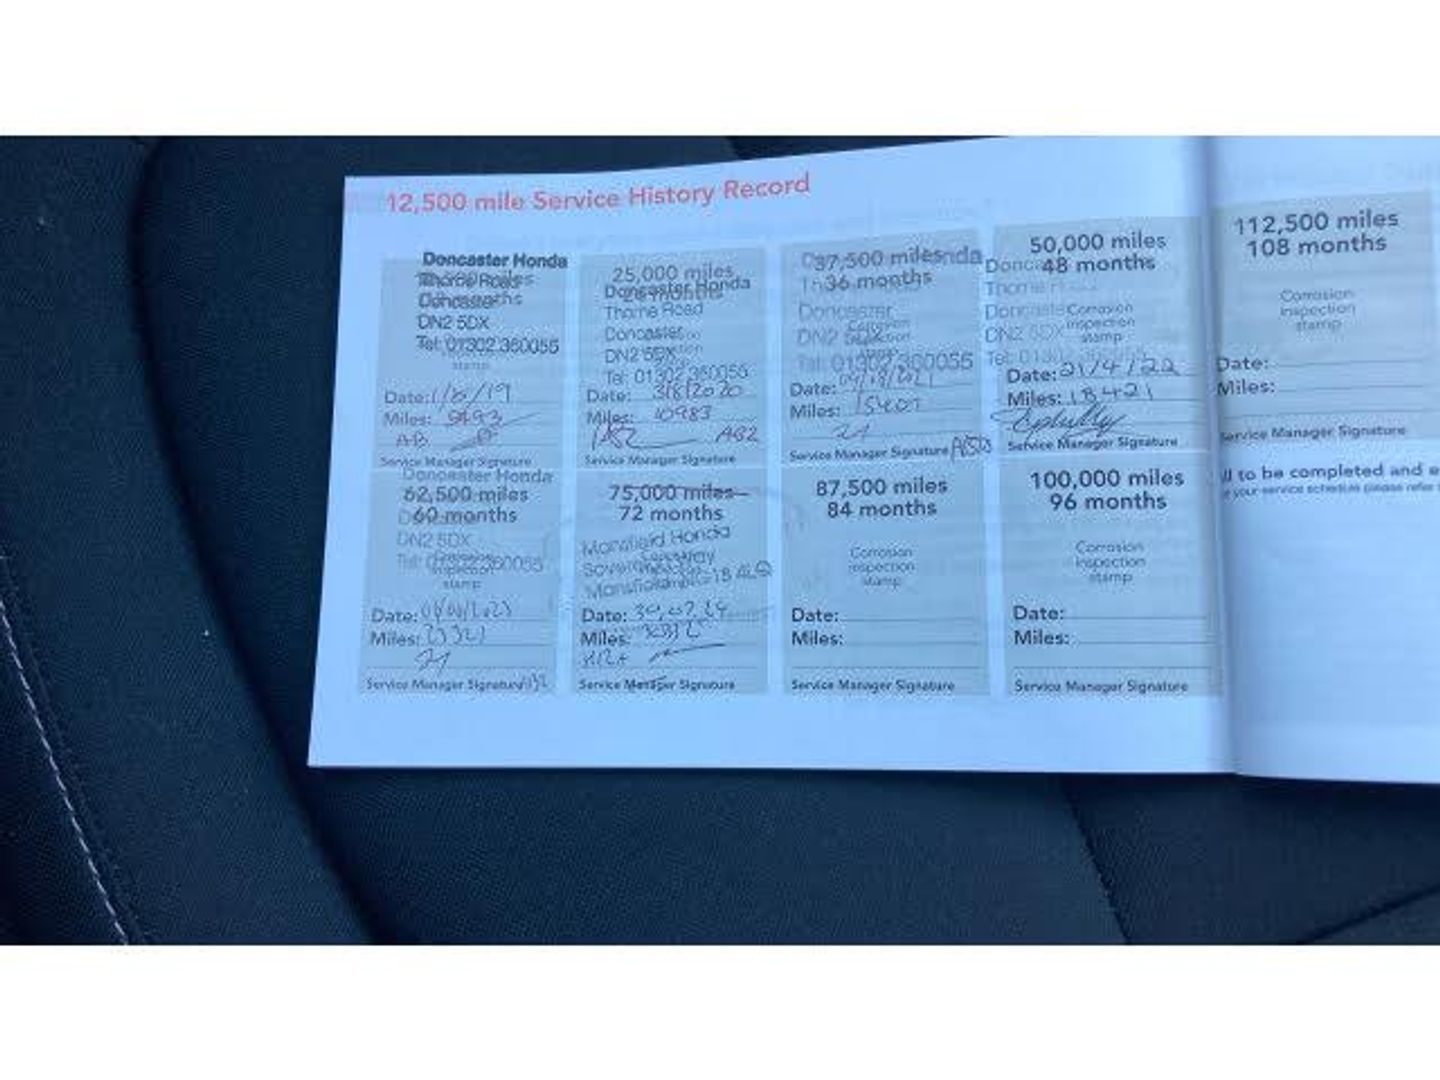 12,500 mile Service History Record
Doncaster Honda
Thorne Road
Doncaster
DN2 5DX
Tel: 01302 360055
stamp
Date: 1/8/19
Miles: 9493
AB
Service Manager Signature
25,000 miles
Doncaster Honda
Thorne Road
Doncaster
DN2 5DX
Tel: 01302 360055
Date: 3/8/2020
Miles: 10983
AS2
Service Manager Signature
37,500 miles
36 months
Doncaster
DN2 5DX
Tel: 01302 360055
Date: 04/08/2021
Miles: 15401
21
Service Manager Signature
50,000 miles
48 months
Thorne
Doncaster
Corrosion
DN2 5DX
inspection
stamp
Date: 21/4/22
Miles: 18421
Service Manager Signature
112,500 miles
108 months
Corrosion
inspection
stamp
Date:
Miles:
Service Manager Signature
Doncaster Honda
62,500 miles
60 months
DN2 5DX
Tel: 01302 360055
stamp
Date:
Miles: 23321
21
Service Manager Signature
75,000 miles
72 months
Mansfield Honda
Way
Mansfield
Date: 30,07,24
Miles:
Service Manager Signature
87,500 miles
84 months
Corrosion
inspection
stamp
Date:
Miles:
Service Manager Signature
100,000 miles
96 months
Corrosion
inspection
stamp
Date:
Miles:
Service Manager Signature
to be completed and
your service schedule please refer